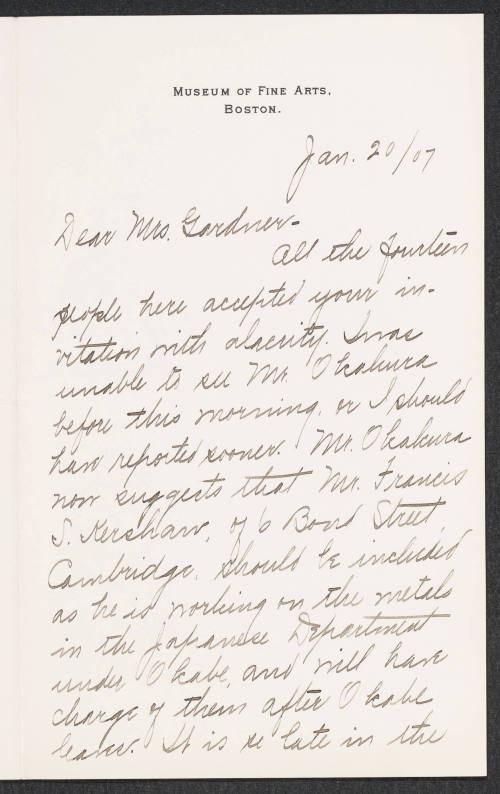 Museum of Fine Arts,
Boston.
Jan. 20/07
Dear Mrs. Gardner-
All the fourteen
people here accepted your in-
vitation with alacrity. I was
unable to see Mr. Okakura
before this morning, or I should
have reported sooner. Mr. Okakura
now suggests that Mr. Francis
S. Kershaw, of 6 Bond Street,
Cambridge, should be included
as he is working on the metals
in the Japanese Department
under Okabe, and will have
charge of them after Okabe
leaves. It is so late in the